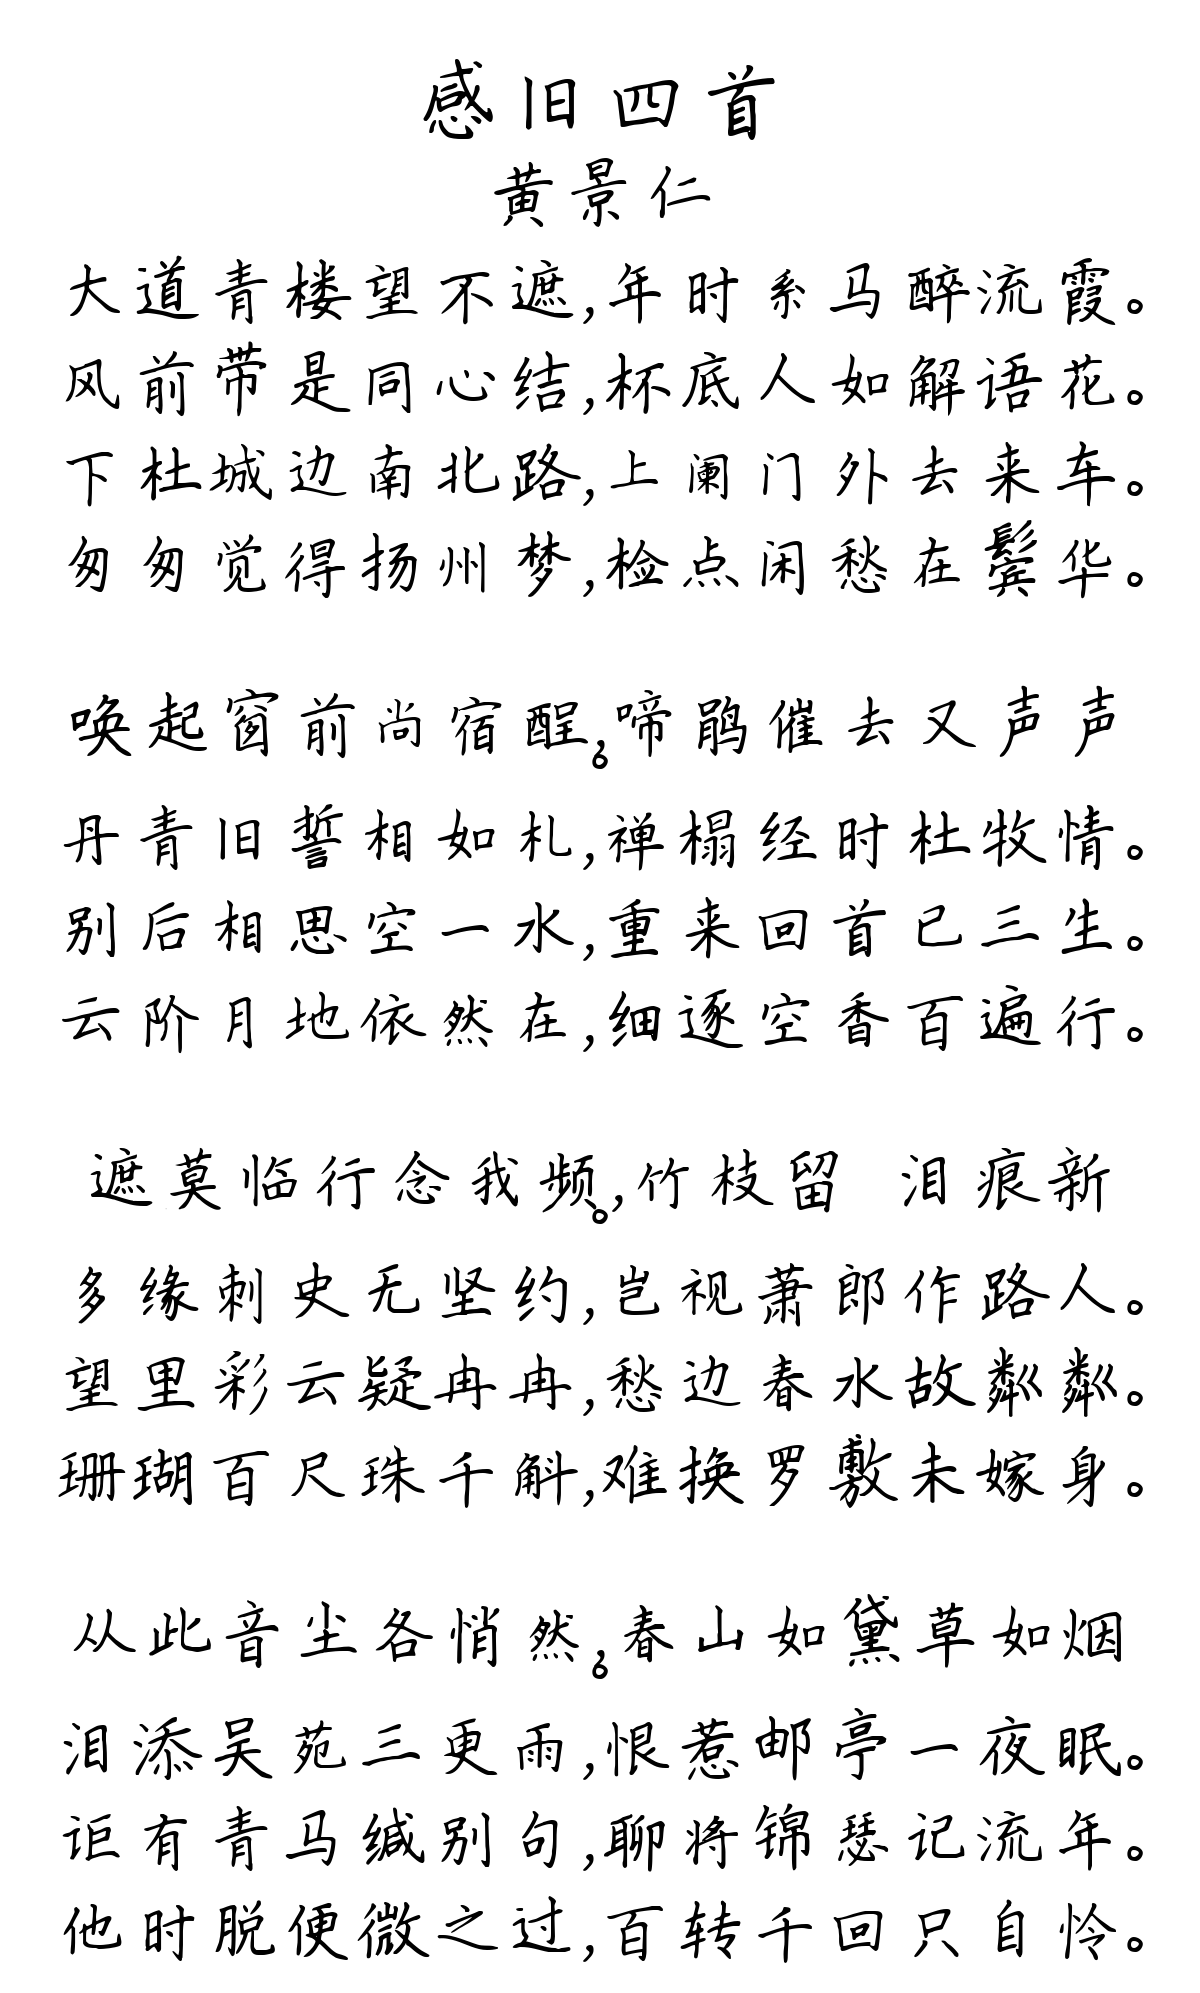 感旧四首
黄景仁
大道青楼望不遮,年时系马醉流霞。
风前带是同心结,杯底人如解语花。
下杜城边南北路,上阑门外去来车。
匆匆觉得扬州梦,检点闲愁在鬓华。
唤起窗前尚宿酲,啼鹃催去又声声。
丹青旧誓相如札,禅榻经时杜牧情。
别后相思空一水,重来回首已三生。
云阶月地依然在,细逐空香百遍行。
遮莫临行念我频,竹枝留 泪痕新。
多缘刺史无坚约,岂视萧郎作路人。
望里彩云疑冉冉,愁边春水故粼粼。
珊瑚百尺珠千斛,难换罗敷未嫁身。
从此音尘各悄然,春山如黛草如烟。
泪添吴苑三更雨,恨惹邮亭一夜眠。
讵有青马缄别句,聊将锦瑟记流年。
他时脱便微之过,百转千回只自怜。